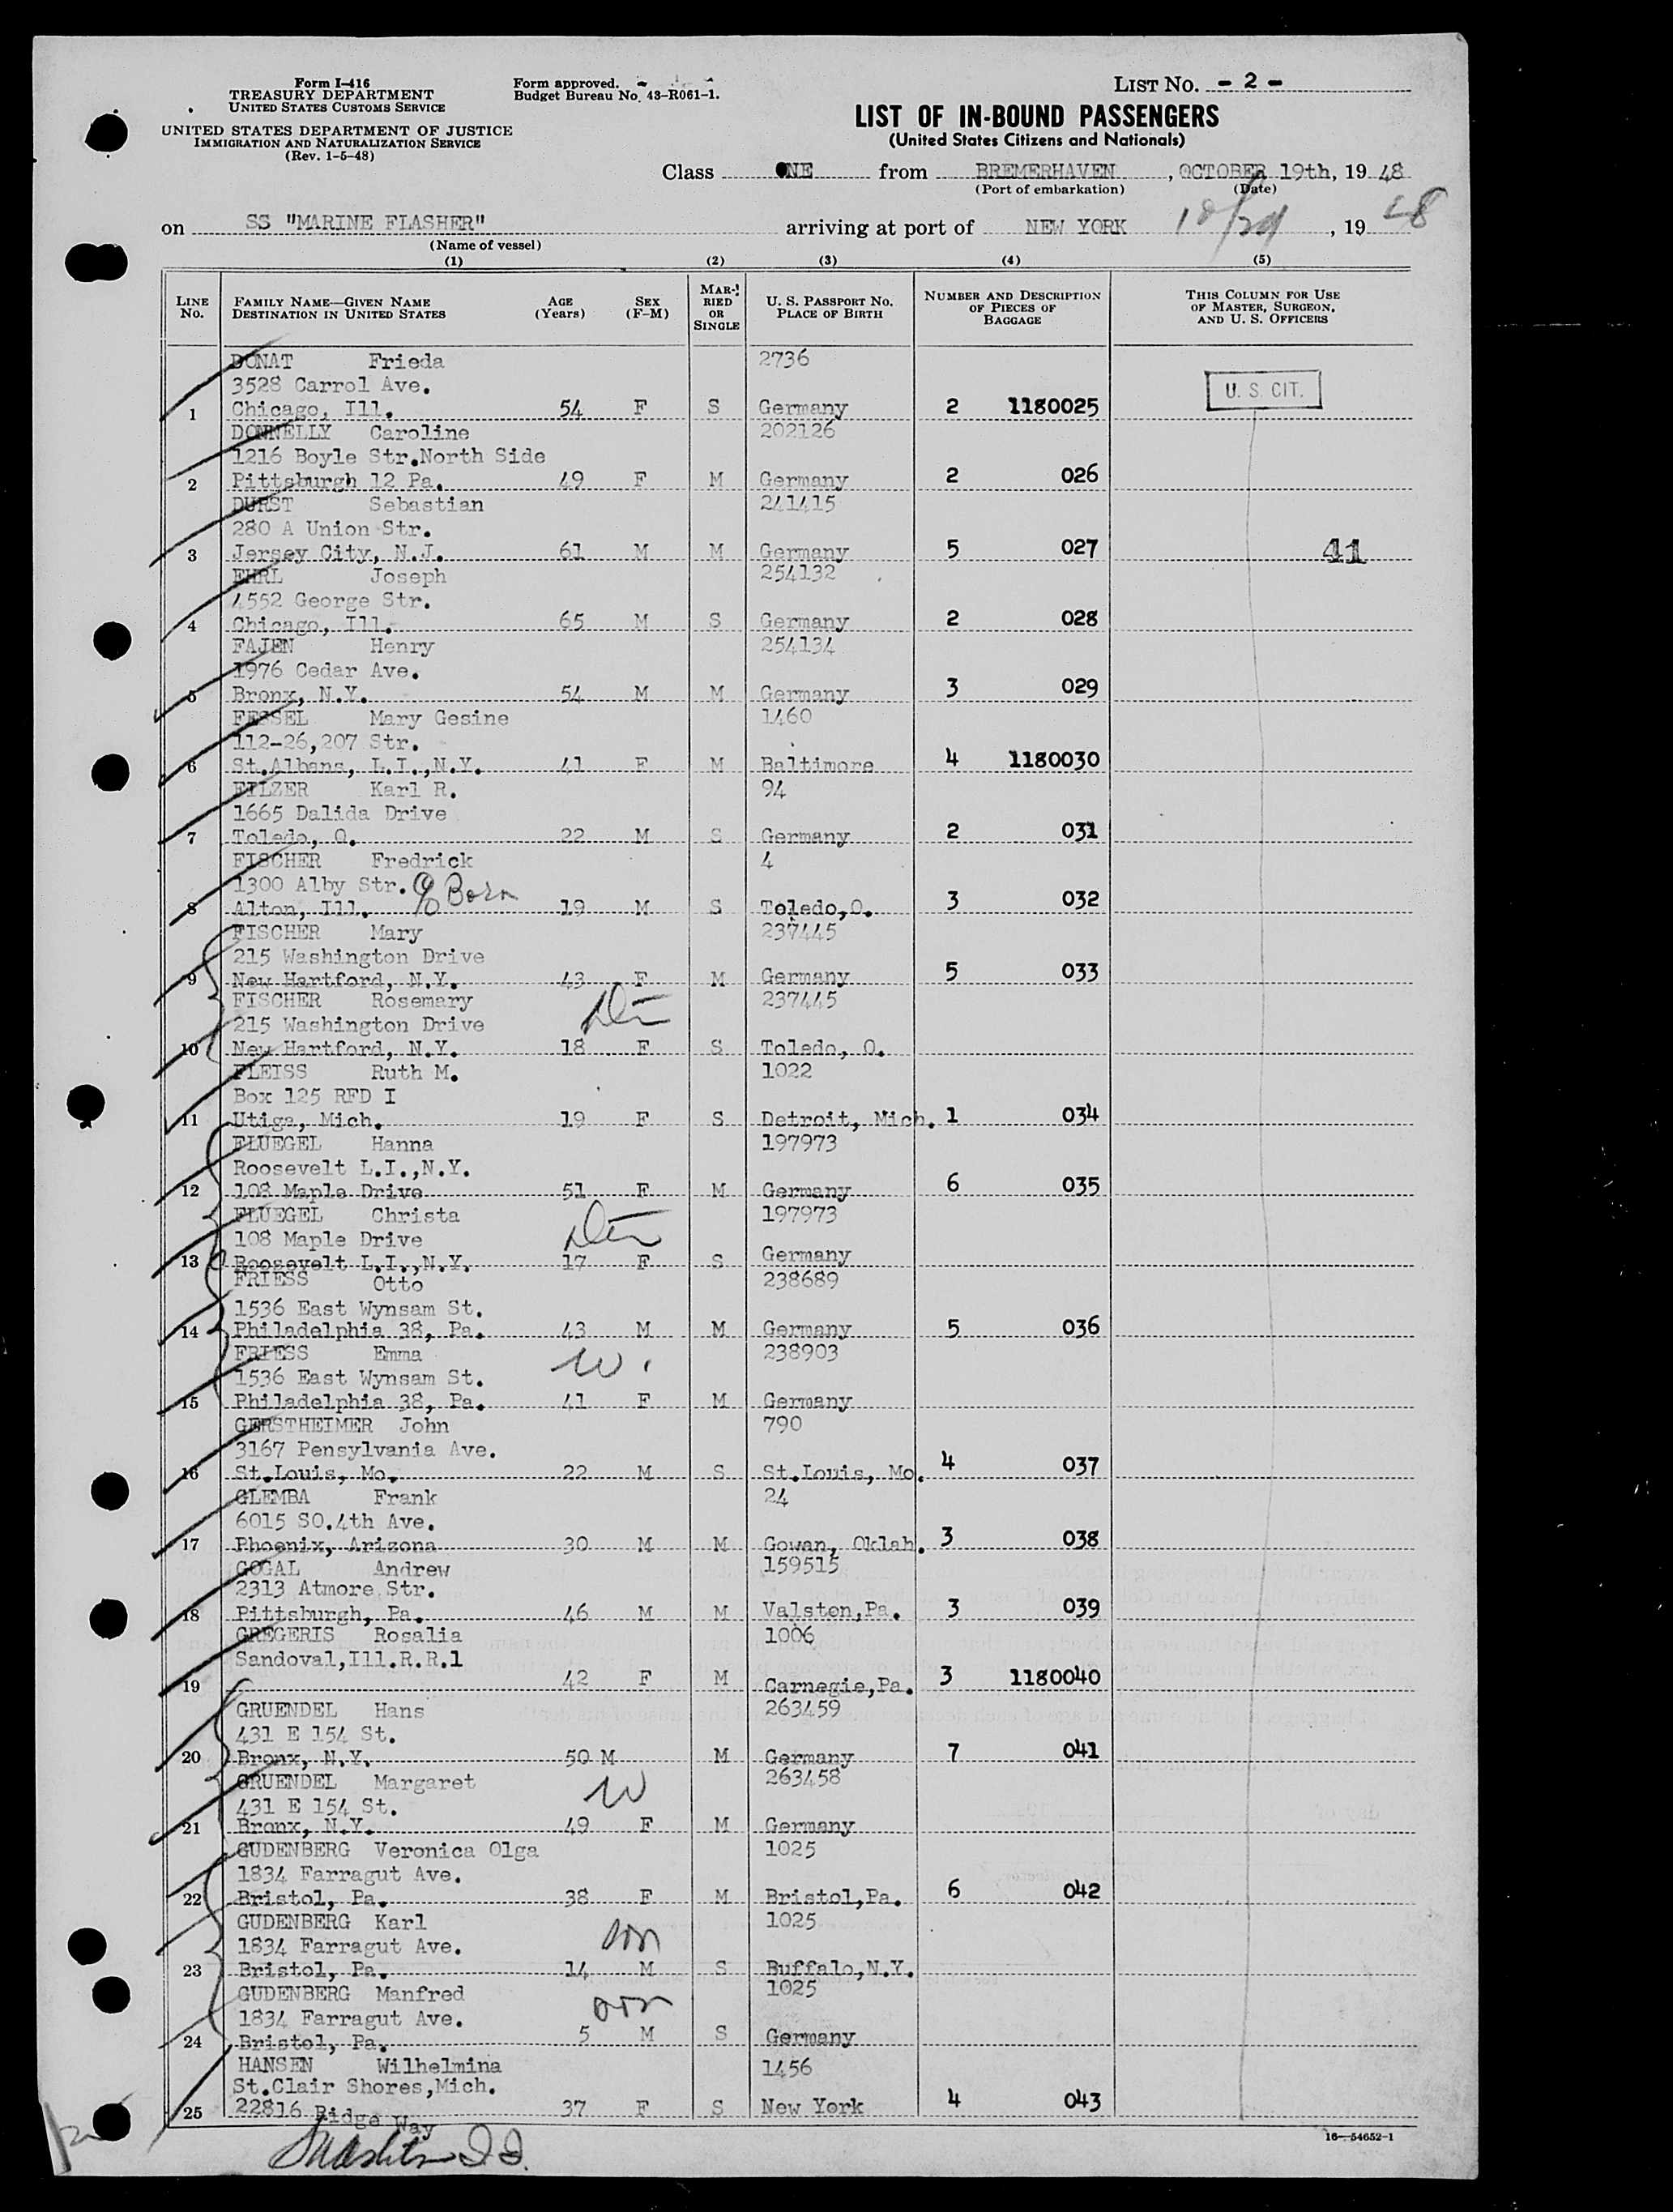 Form I-416
TREASURY DEPARTMENT
UNITED STATES CUSTOMS SERVICE
UNITED STATES DEPARTMENT OF JUSTICE
IMMIGRATION AND NATURALIZATION SERVICE
(Rev. 1-5-48)
Form approved.
Budget Bureau No. 43-R061-1.
LIST NO. - 2 -
LIST OF IN-BOUND PASSENGERS
(United States Citizens and Nationals)
Class ONE from BREMERHAVEN, OCTOBER 19th, 19 48
(Port of embarkation) (Date)
on SS "MARINE FLASHER" arriving at port of NEW YORK 10/29, 19 48
(Name of vessel)
(1) (2) (3) (4) (5)
LINE NO. FAMILY NAME—GIVEN NAME DESTINATION IN UNITED STATES AGE (Years) SEX (F-M) MARRIED OR SINGLE U. S. PASSPORT NO. PLACE OF BIRTH NUMBER AND DESCRIPTION OF PIECES OF BAGGAGE THIS COLUMN FOR USE OF MASTER, SURGEON, AND U. S. OFFICERS
DONAT Frieda 2736
3528 Carrol Ave. U. S. CIT.
1 Chicago, Ill. 54 F S Germany 2 1180025
DONNELLY Caroline 202126
1216 Boyle Str.North Side
2 Pittsburgh 12 Pa. 49 F M Germany 2 026
DURST Sebastian 241415
280 A Union Str.
3 Jersey City, N.J. 61 M M Germany 5 027 41
EHRL Joseph 254132
4552 George Str.
4 Chicago, Ill. 65 M S Germany 2 028
FAJEN Henry 254134
1976 Cedar Ave.
5 Bronx, N.Y. 54 M M Germany 3 029
FESSEL Mary Gesine 1460
112-26,207 Str.
6 St.Albans, L.I.,N.Y. 41 F M Baltimore 4 1180030
FILZER Karl R. 94
1665 Dalida Drive
7 Toledo, O. 22 M S Germany 2 031
FISCHER Fredrick 4
1300 Alby Str. c/o Born
8 Alton, Ill. 19 M S Toledo,O. 3 032
FISCHER Mary 237445
215 Washington Drive
9 New Hartford, N.Y. 43 F M Germany 5 033
FISCHER Rosemary 237445
215 Washington Drive
10 New Hartford, N.Y. 18 F S Toledo, O.
FLEISS Ruth M. 1022
Box 125 RFD I
11 Utiga, Mich. 19 F S Detroit, Mich. 1 034
FLUEGEL Hanna 197973
Roosevelt L.I.,N.Y.
12 108 Maple Drive 51 F M Germany 6 035
FLUEGEL Christa 197973
108 Maple Drive
13 Roosevelt L.I.,N.Y. 17 F S Germany
FRIESS Otto 238689
1536 East Wynsam St.
14 Philadelphia 38, Pa. 43 M M Germany 5 036
FRIESS Emma 238903
1536 East Wynsam St. W.
15 Philadelphia 38, Pa. 41 F M Germany
GERSTHEIMER John 790
3167 Pensylvania Ave.
16 St.Louis, Mo. 22 M S St.Louis, Mo. 4 037
GLEMBA Frank 24
6015 SO.4th Ave.
17 Phoenix, Arizona 30 M M Gowan, Oklah. 3 038
GOGAL Andrew 159515
2313 Atmore Str.
18 Pittsburgh, Pa. 46 M M Valsten,Pa. 3 039
GREGERIS Rosalia 1006
Sandoval,Ill.R.R.1
19 42 F M Carnegie,Pa. 3 1180040
GRUENDEL Hans 263459
431 E 154 St.
20 Bronx, N.Y. 50 M M Germany 7 041
GRUENDEL Margaret 263458
431 E 154 St. W
21 Bronx, N.Y. 49 F M Germany
GUDENBERG Veronica Olga 1025
1834 Farragut Ave.
22 Bristol, Pa. 38 F M Bristol,Pa. 6 042
GUDENBERG Karl 1025
1834 Farragut Ave. son
23 Bristol, Pa. 14 M S Buffalo,N.Y.
GUDENBERG Manfred 1025
1834 Farragut Ave. son
24 Bristol, Pa. 5 M S Germany
HANSEN Wilhelmina 1456
St.Clair Shores,Mich.
25 22816 Ridge Way 37 F S New York 4 043
16—54652-1